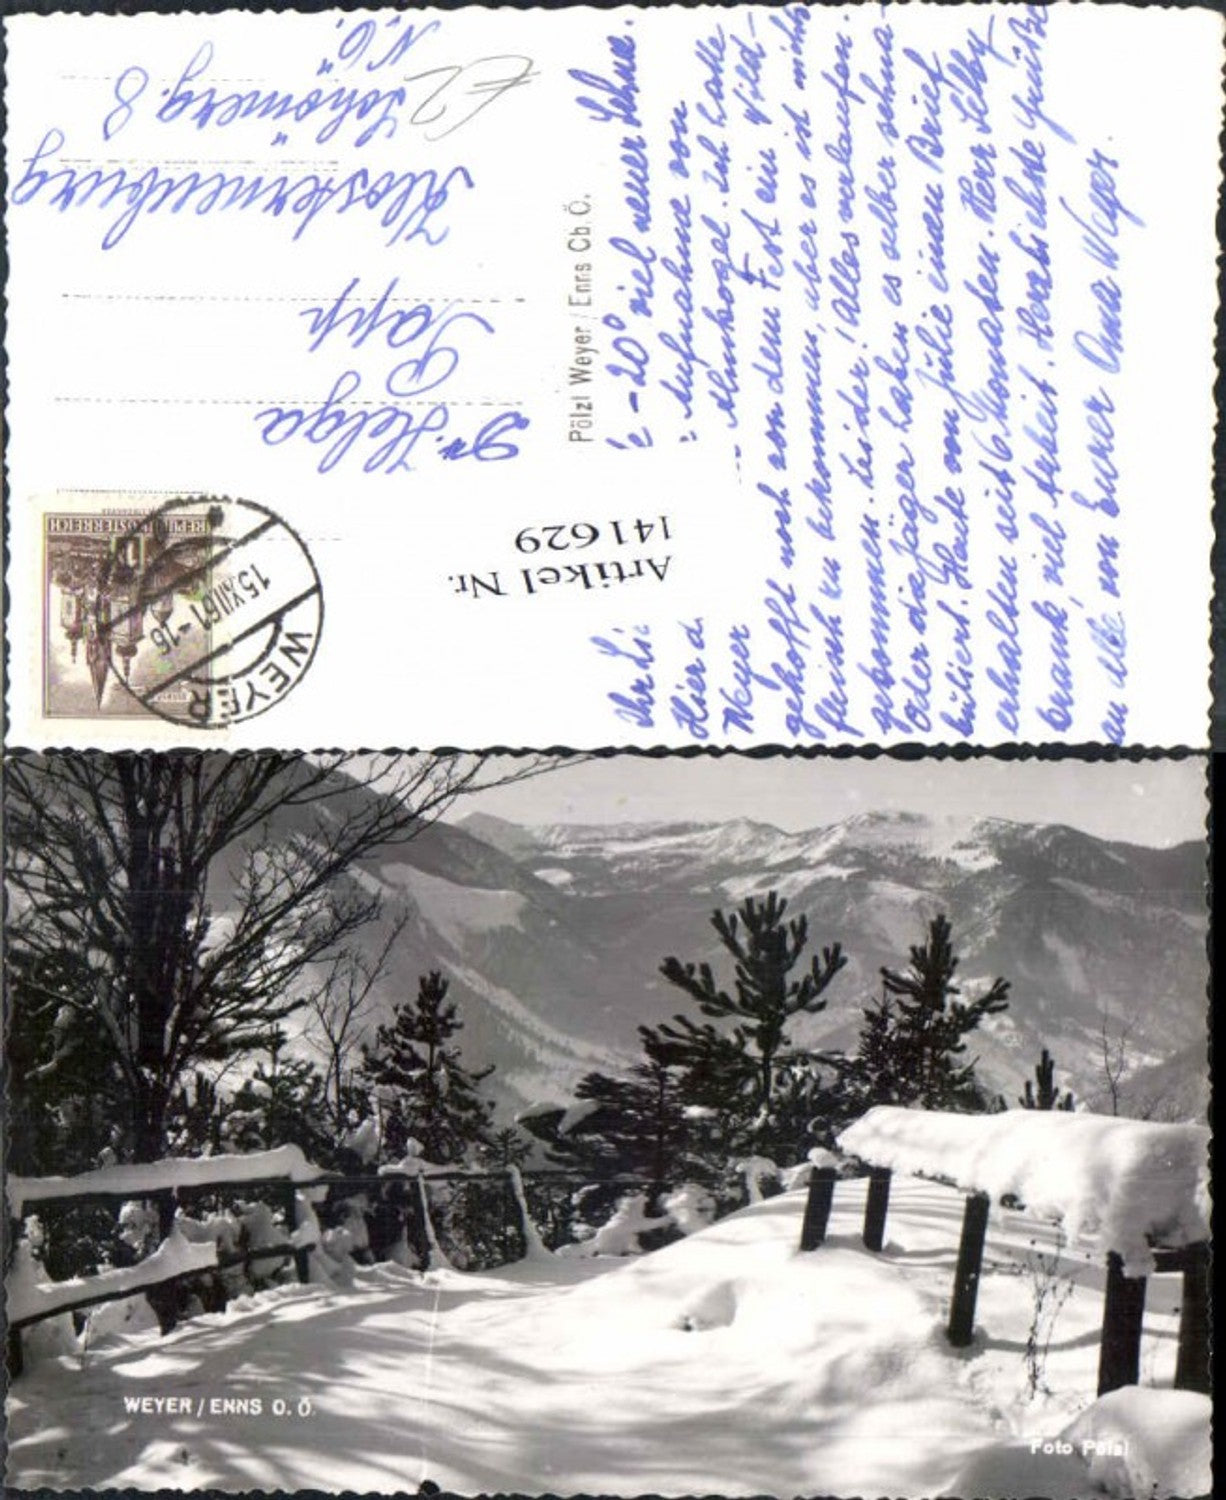 Dr. Helga
Papp
Klosterneuburg
Schömerg. 8
N. Ö.
€2
REPUBLIK ÖSTERREICH
WEYER
15.XII.61-16
Artikel Nr.
141629
Pölzl Weyer / Enns Ob. Ö.
Ihr Li
-20° viel neuer Schnee.
Hier d
Aufnahme von
Weyer
Almkogel. Ich hatte
gehofft noch vor dem Fest ein Wild-
fleisch zu bekommen, aber es ist nichts
gekommen. Leider! Alles verlaufen.
Oder die Jäger haben es selber schna-
buliert. Habe von Julie einen Brief
erhalten seit 6 Monaten. Herr
krank, viel Arbeit. Herzlichste Grüße
an Alle von Eurer Oma Weyer.
WEYER / ENNS O. Ö.
Foto Pölzl